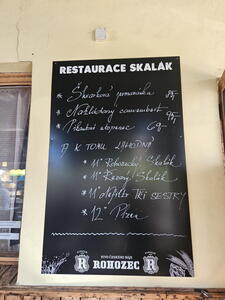 RESTAURACE SKALÁK
* Škvarková pomazánka 85,-
* Nakládaný camembert 95,-
* Pikantní utopenec 69,-
A K TOMU LAHODNÁ
* 11° Rohozecký Skalák
* 11° Řezaný Skalák
* 11° Nefiltr TŘI SESTRY
* 12° Plzeň
PIVO ČESKÉHO RÁJE
R ROHOZEC R